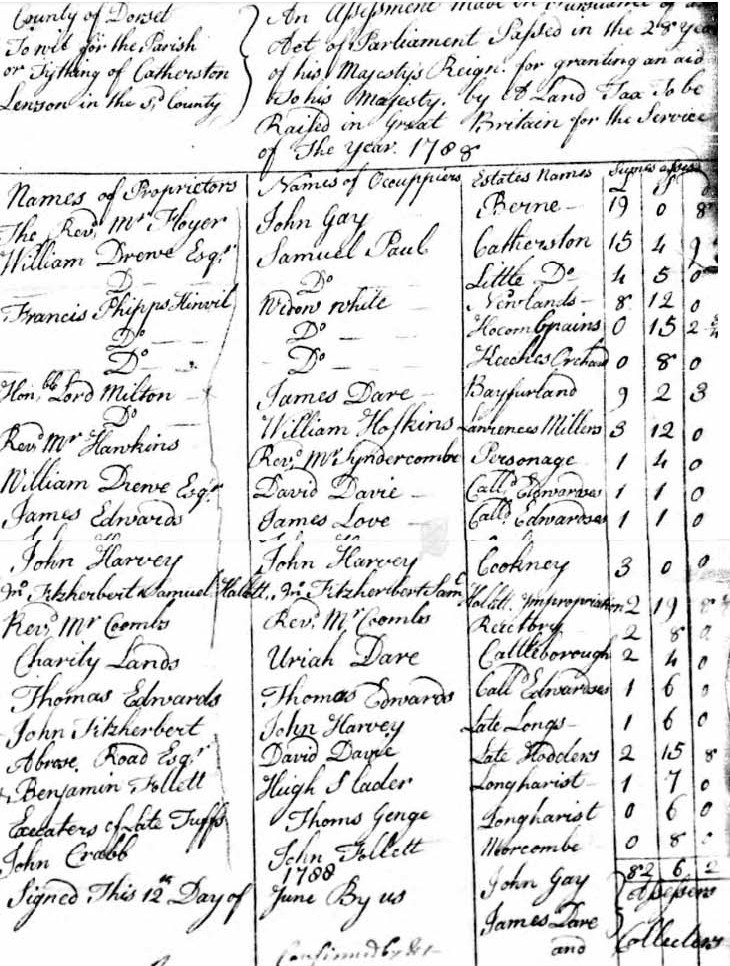 County of Dorset
To wit for the Parish
or Tything of Catherston
Lenson in the Sd County
An Assessment made in Pursuance of an
Act of Parliament Passed in the 28 Year
of his Majestys Reign. for granting an aid
to his Majesty. by A Land Tax To be
Raised in Great Britain for the Service
of The Year. 1788
Names of Proprietors Names of Occuppiers Estates Names Sums assessed
The Revd. Mr Floyer John Gay Berne 19 0 8
William Drewe Esqr. Samuel Paul Catherston 15 4 9
Do Do Little Do 4 5 0
Francis Phipps Hinvil Widow White Newlands 8 12 0
Do Do 0 15 2
Do Do Orchard 0 8 0
Honbl. Lord Milton James Dare Bayfurland 9 2 3
Do William Hoskins Lawrences Millers 3 12 0
Revd Mr Hawkins Revd. Mr Syndercombe Personage 1 4 0
William Drewe Esqr David Davie Calld Edwardses 1 1 0
James Edwards James Love Calld Edwardses 1 1 0
John Harvey John Harvey Cookney 3 0 0
Jno. Fitzherbert & Samuel Halett Jno. Fitzherbert Saml Halett. Impropriation 2 19 8
Revd. Mr Coombs Revd. Mr Coombs Rectory 2 8 0
Charity Lands Uriah Dare Cattleborough 2 4 0
Thomas Edwards Thomas Edwards Calld Edwardses 1 6 0
John Fitzherbert John Harvey Late Longs 1 6 0
Abrose. Road Esqr. David Davie Late Hodders 2 15 8
Benjamin Follett Hugh Slader Longharist 1 7 0
Execaters of Late Tuffs Thoms Genge Longharist 0 6 0
John Crabb John Follett Morcombe 0 8
82 6 2
Signed This 12th Day of June 1788 By us John Gay Assessers
James Dare and Collecters
Confirmed by